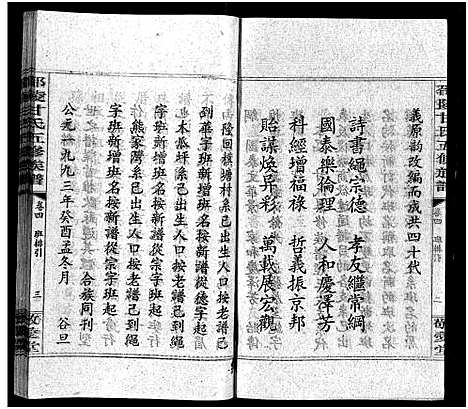 邵陵甘氏五修族譜
卷四
班排引
二
敬愛堂
義原韵改編而成共四十代
詩書繩宗德　孝友繼常綱
國泰樂倫理　人和慶澤芳
科經增福祿　哲義振京邦
貽謀煥异彩　萬載展宏觀
陸回横塘村系已出生人口按老譜已
到華字班新增班名按新譜從德字起
也木瓜圩系已出生人口按老譜已到繩
字班新增班名按新譜從宗字班起
熊家灣系已出生人口按老譜已到
字班新增班名按新譜從宗字班起
合族同刊
公元一九九三年癸酉孟冬月　谷旦
邵陵甘氏五修族譜
卷四
班排引
三
敬愛堂